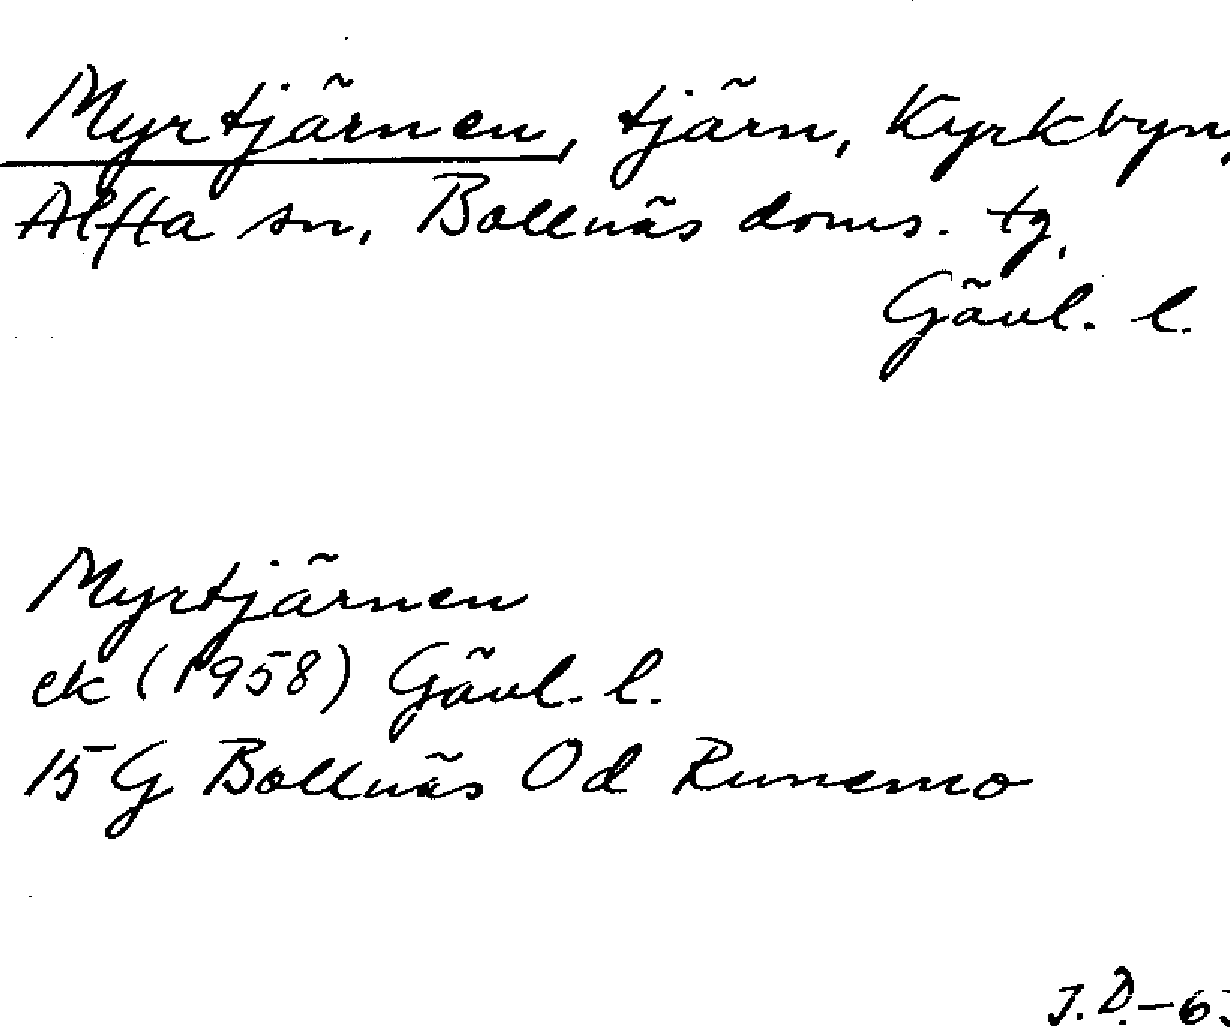 Myrtjärnen, tjärn, Kyrkbyn,
Alfta sn, Bollnäs doms. tg.
Gävl. l.
Myrtjärnen
ek (1958) Gävl. l.
15 G Bollnäs 0 d Runemo
J.D.-63